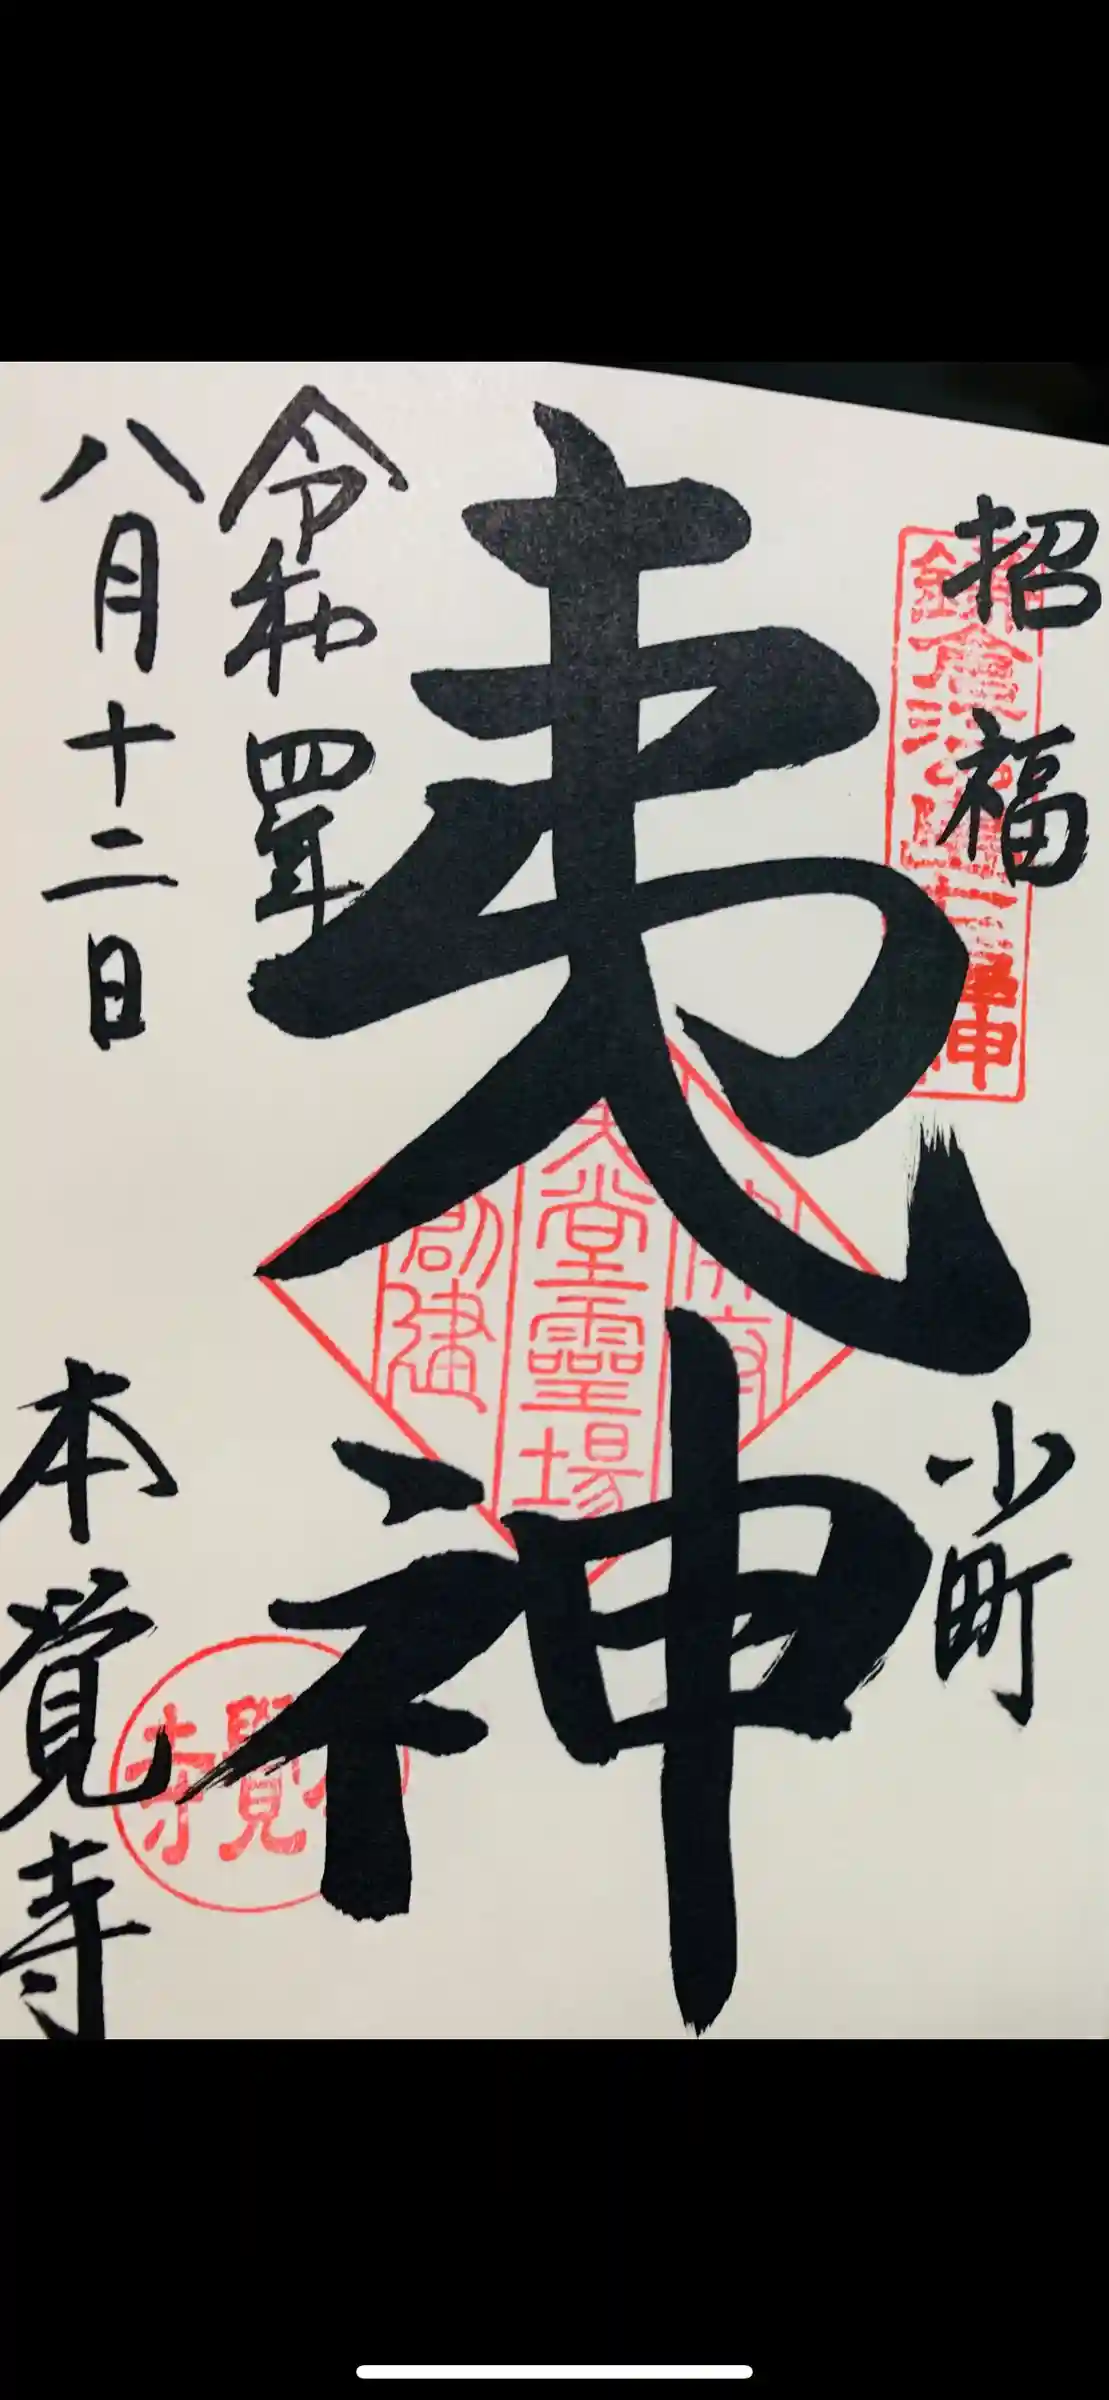 招福
小町
鎌倉江の島七福神
夷神
夷堂霊場
創建
令和四年
八月十二日
本覚寺
本覺寺